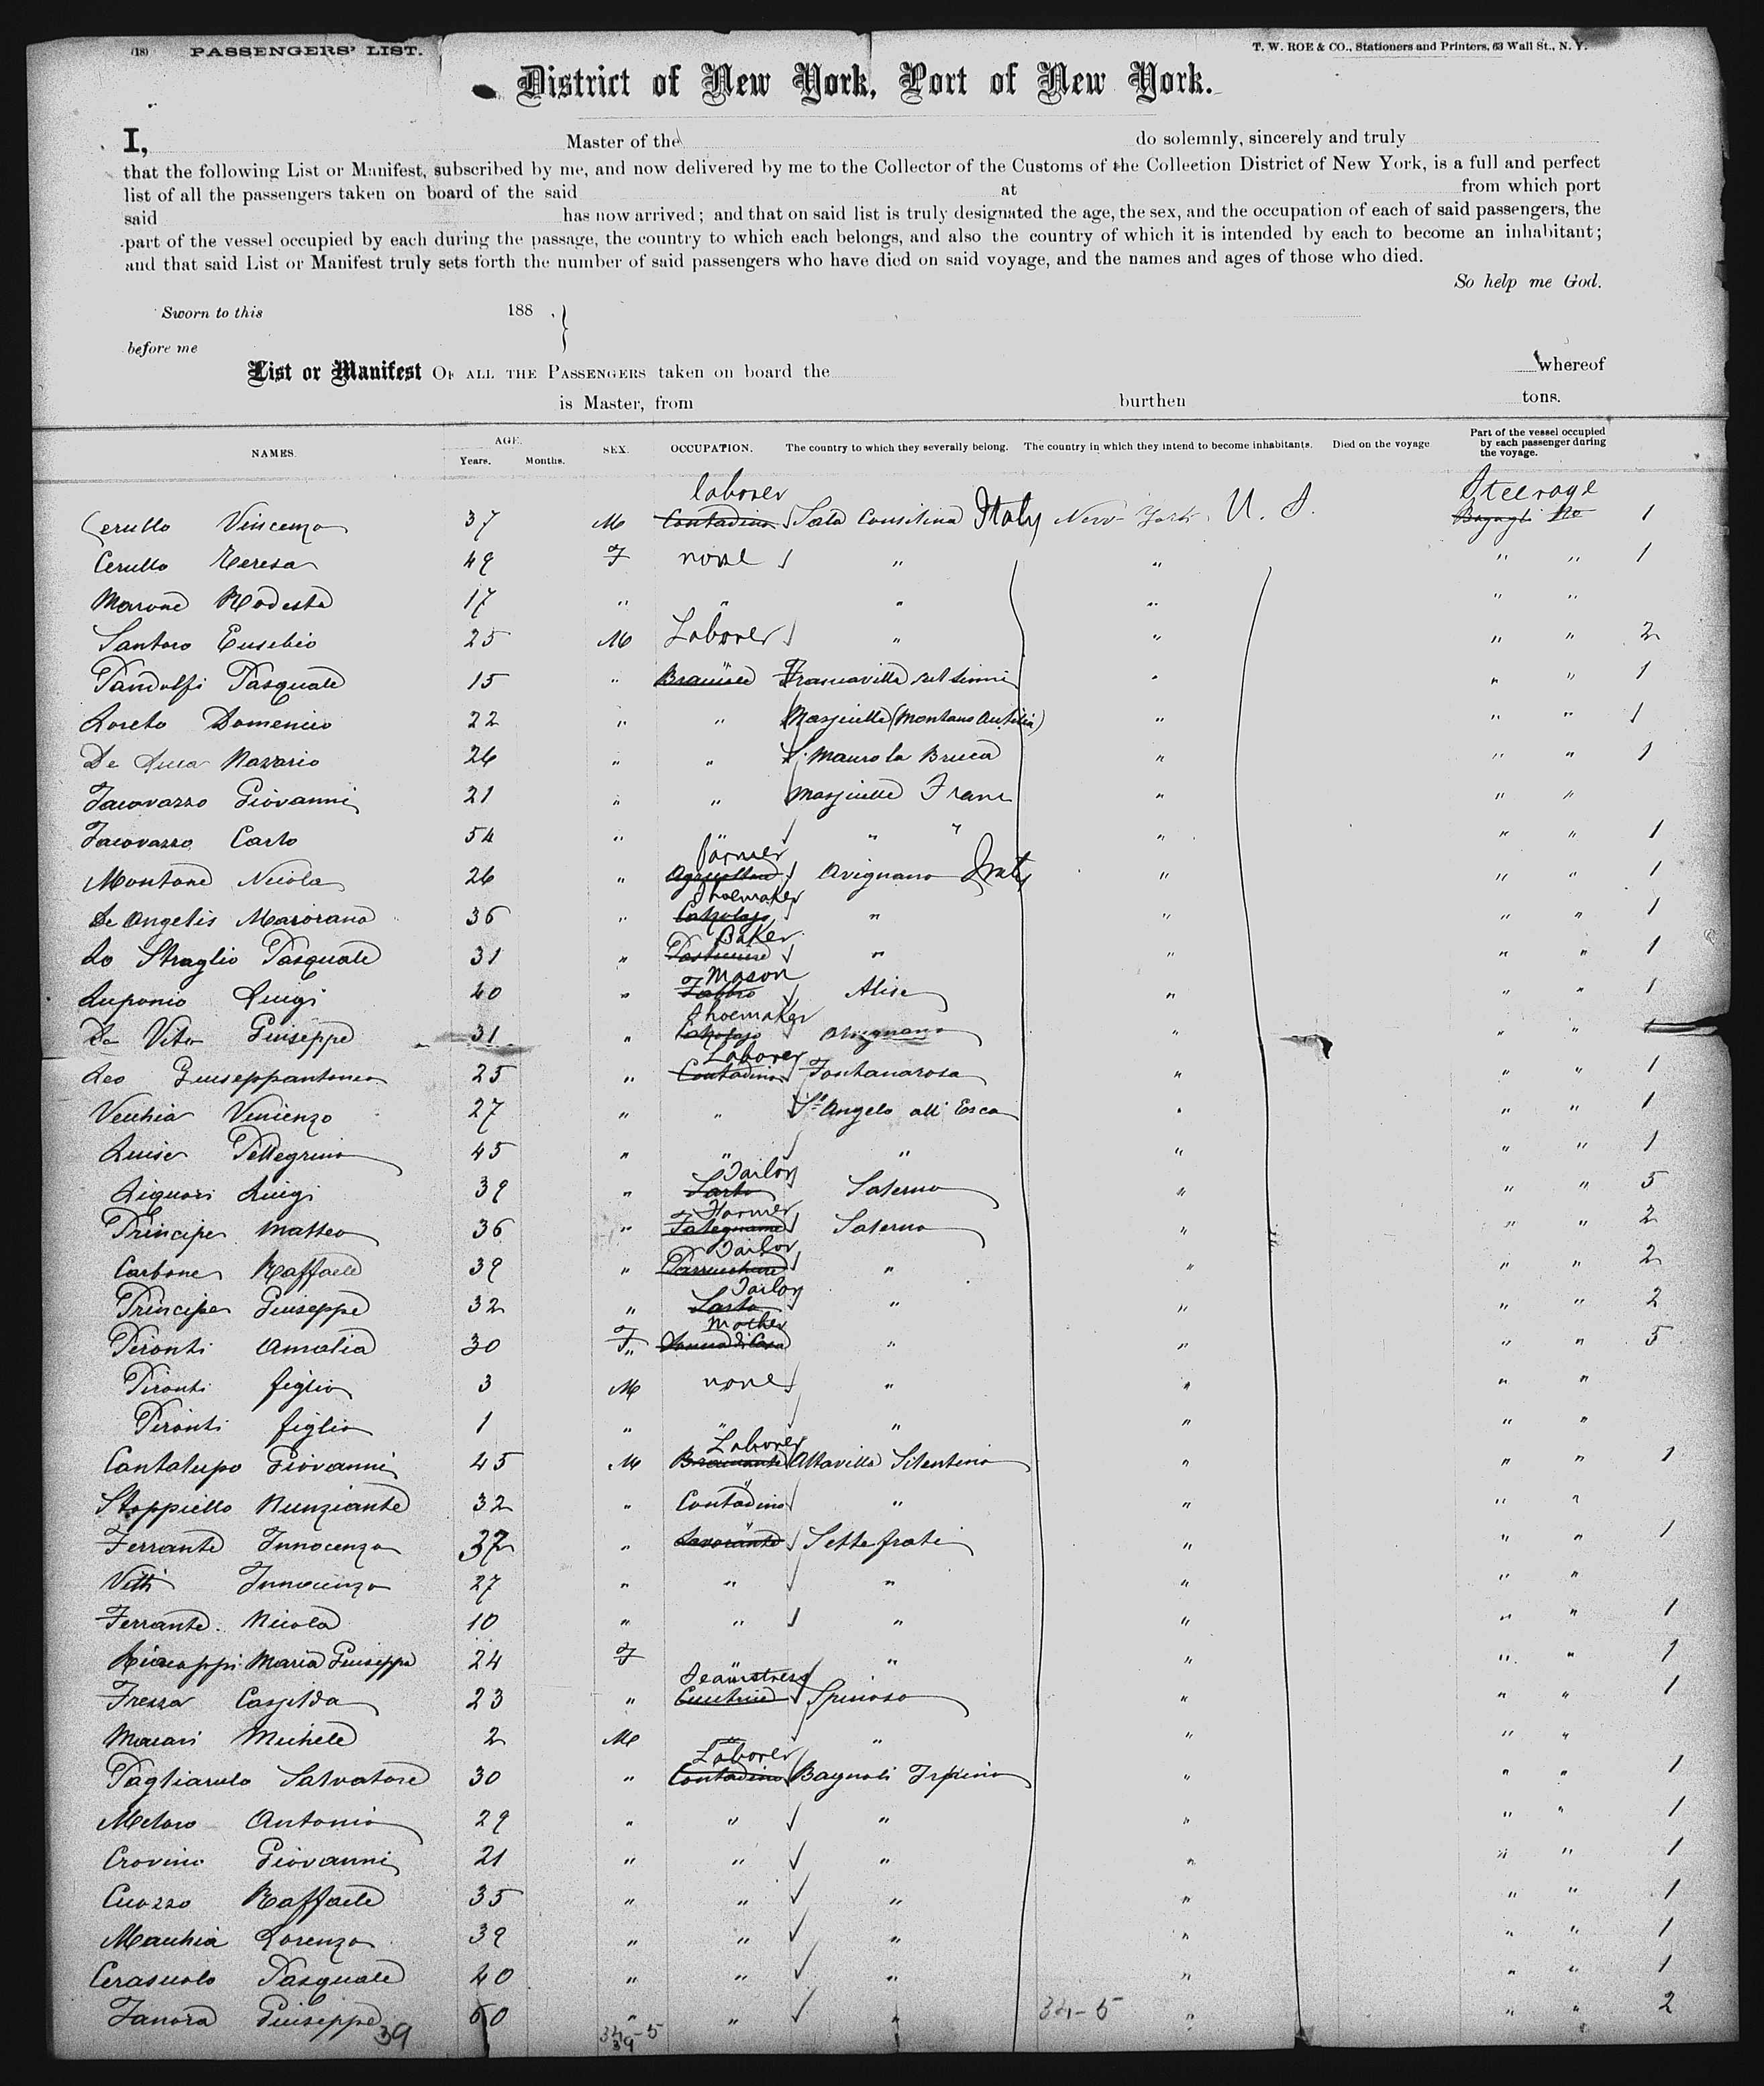 (18) PASSENGERS' LIST. T. W. ROE & CO., Stationers and Printers, 63 Wall St., N. Y.
District of New York, Port of New York.
I, Master of the do solemnly, sincerely and truly
that the following List or Manifest, subscribed by me, and now delivered by me to the Collector of the Customs of the Collection District of New York, is a full and perfect
list of all the passengers taken on board of the said at from which port
said has now arrived; and that on said list is truly designated the age, the sex, and the occupation of each of said passengers, the
part of the vessel occupied by each during the passage, the country to which each belongs, and also the country of which it is intended by each to become an inhabitant;
and that said List or Manifest truly sets forth the number of said passengers who have died on said voyage, and the names and ages of those who died.
So help me God.
Sworn to this 188 .}
before me
List or Manifest OF ALL THE PASSENGERS taken on board the whereof
is Master, from burthen tons.
NAMES. AGE. Years. Months. SEX. OCCUPATION. The country to which they severally belong. The country in which they intend to become inhabitants. Died on the voyage Part of the vessel occupied by each passenger during the voyage.
laborer Steerage
Cerullo Vincenzo 37 M Contadino Sala Consilina Italy New York U. S. 1
Cerullo Teresa 49 F none " " " " 1
Marone Modesta 17 " " " " " "
Santoro Eusebio 25 M Laborer " " " " 2
Pandolfi Pasquale 15 " " Francavilla sul Sinni " " " 1
Loreto Domenico 22 " " (Montano Antilia) " " " 1
De Luca Nazario 26 " " S. Mauro la Bruca " " " 1
Iacovazzo Giovanni 21 " " " " "
Iacovazzo Carlo 54 " " " " " " " 1
Farmer
Montone Nicola 26 " Avignano Italy " " " 1
Shoemaker
De Angelis 36 " " " " " 1
Baker
Lo Straglio Pasquale 31 " " " " " 1
Mason
Luponio Luigi 40 " Fabbro " " " 1
Shoemaker
De Vito Giuseppe 31 " " " " 1
Laborer
Leo Giuseppantonio 25 " Contadino Fontanarosa " " " 1
Vecchia Vincenzo 27 " " St Angelo all' Esca " " " 1
Luise Pellegrino 45 " " " " " " 1
Tailor
Liguori Luigi 39 " Sarto Salerno " " " 5
Farmer
Principe Matteo 36 " Falegname Salerno " " " 2
Tailor
Carbone Raffaele 39 " Parrucchiere " " " " 2
Tailor
Principe Giuseppe 32 " Sarto " " " " 2
Mother
Pironti Amalia 30 F " Donna di Casa " " " " 5
Pironti figlio 3 M none " " " "
Pironti figlio 1 " " " " " "
Laborer
Cantalupo Giovanni 45 M Altavilla Silentina " " " 1
Stoppiello Nunziante 32 " Contadino " " " "
Ferrante Innocenzo 37 " Lavorante Settefrati " " " 1
Vitti Innocenzo 27 " " " " " "
Ferrante Nicola 10 " " " " " " 1
Maria Giuseppa 24 F " " " " 1
Seamstress
Frezza Casilda 23 " Cucitrice Spinoso " " " 1
Macari Michele 2 M " " " " "
Laborer
Pagliarulo Salvatore 30 " Contadino Bagnoli Irpino " " " 1
Meloro Antonio 29 " " " " " " 1
Crovino Giovanni 21 " " " " " " 1
Cuozzo Raffaele 35 " " " " " " 1
Macchia Lorenzo 39 " " " " " " 1
Cerasuolo Pasquale 40 " " " " " " 1
Giuseppe 60 " " " 34-5 " " " 2
39 34-5
39